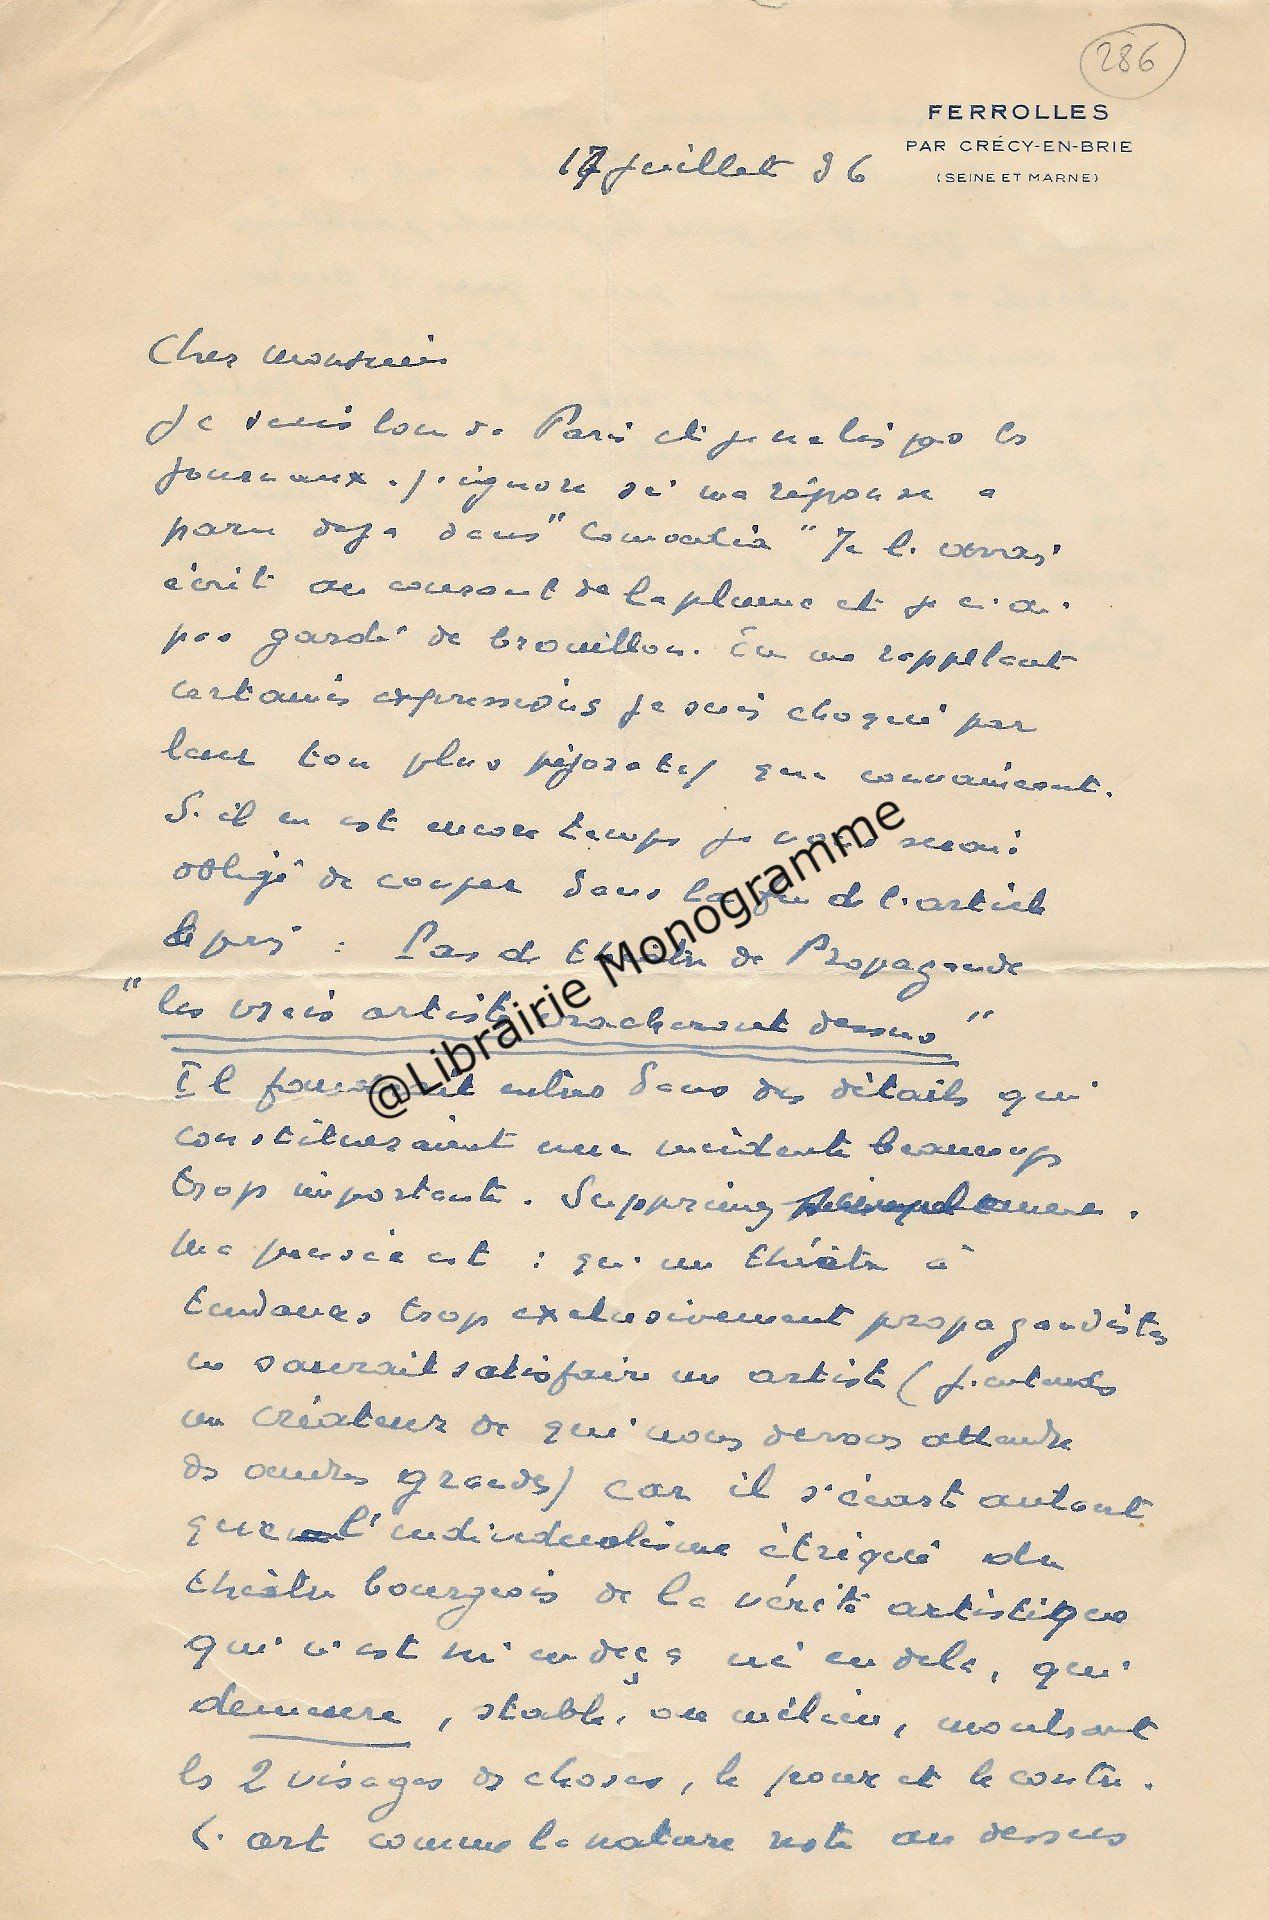 286
FERROLLES
PAR CRÉCY-EN-BRIE
(SEINE ET MARNE)
17 juillet 36
Cher monsieur
Je suis loin de Paris et je ne lis pas les
journaux. J'ignore si ma réponse a
paru déjà dans "Comoedia" Je l'avais
écrit au courant de la plume et je n'ai
pas gardé de brouillon. En me rappelant
certaines expressions je suis choqué par
leur ton plus péjoratif que convaincant.
S'il en est encore temps je vous serai
obligé de couper dans la fin de l'article
: Pas de théâtre de Propagande
"les vrais artistes cracheront dessus"
Il faudrait entrer dans des détails qui
constitueraient une incidente beaucoup
trop importante. Supprimez
Ma pensée est : qu'un théâtre à
tendances trop exclusivement propagandistes
ne saurait satisfaire un artiste (j'entends
un créateur de qui nous devons attendre
des œuvres grandes) car il s'écarte autant
que l'individualisme étriqué du
théâtre bourgeois de la vérité artistique
qui n'est ni en deçà ni en delà, qui
demeure, stable, au milieu, montrant
les 2 visages des choses, le pour et le contre.
L'art comme la nature reste au dessus
@Librairie Monogramme